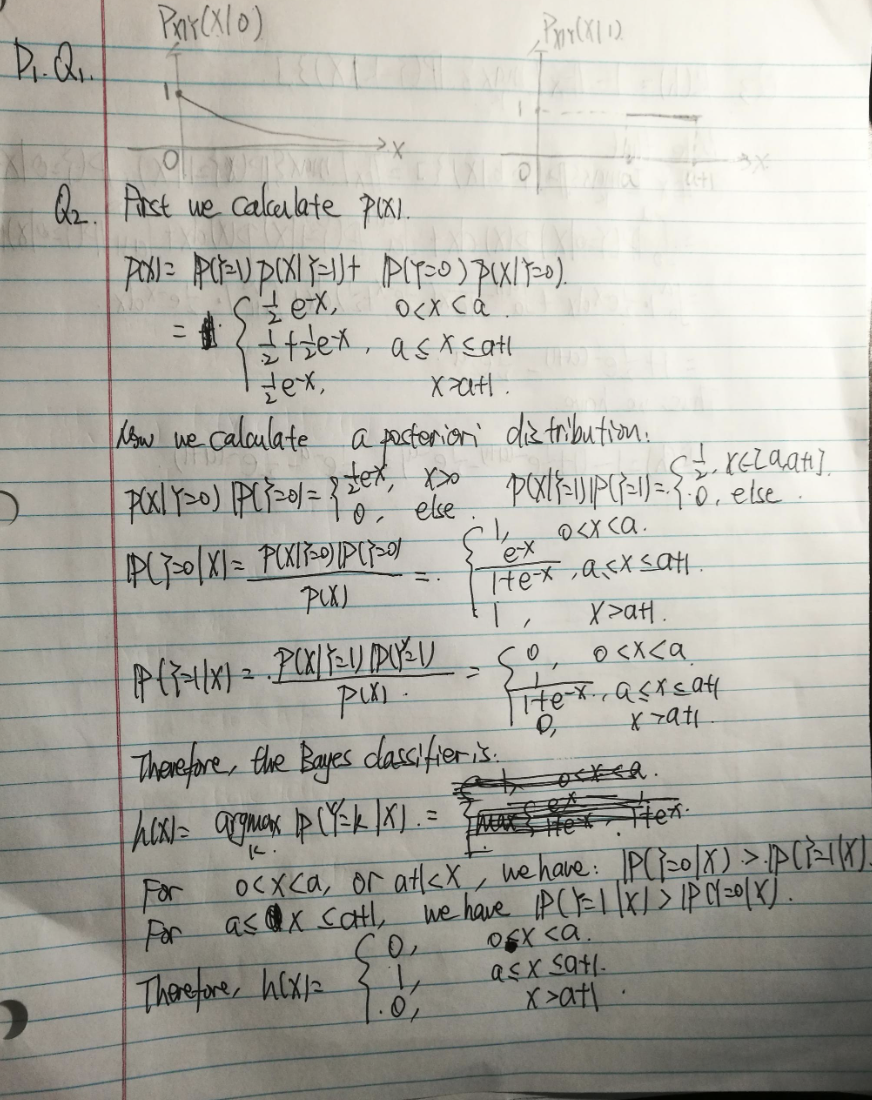 P1. Q1.
P_{X|Y}(X|0) P_{X|Y}(X|1)
1 0 X 1 0 a a+1 X
Q2. First we calculate p(x).
p(x) = P(Y=1) p(X|Y=1) + P(Y=0) p(X|Y=0).
= { 1/2 e^{-x}, 0<x<a.
1/2 + 1/2 e^{-x}, a≤x≤a+1
1/2 e^{-x}, x>a+1.
Now we calculate a posteriori distribution.
p(X|Y=0) P(Y=0) = { 1/2 e^{-x}, x>0 p(X|Y=1) P(Y=1) = { 1/2, x∈[a,a+1].
0, else. 0, else.
P(Y=0|X) = p(X|Y=0) P(Y=0) / p(x) = { 1, 0<x<a.
e^{-x} / 1+e^{-x}, a≤x≤a+1.
1, x>a+1.
P(Y=1|X) = p(X|Y=1) P(Y=1) / p(x). = { 0, 0<x<a
1 / 1+e^{-x}, a≤x≤a+1
0, x>a+1.
Therefore, the Bayes classifier is.
h(x) = argmax_k P(Y=k|X). =
For 0<x<a, or a+1<x, we have: P(Y=0|X) > P(Y=1|X).
For a≤x≤a+1, we have P(Y=1|X) > P(Y=0|X).
Therefore, h(x) = { 0, 0≤x<a.
1, a≤x≤a+1.
0, x>a+1.